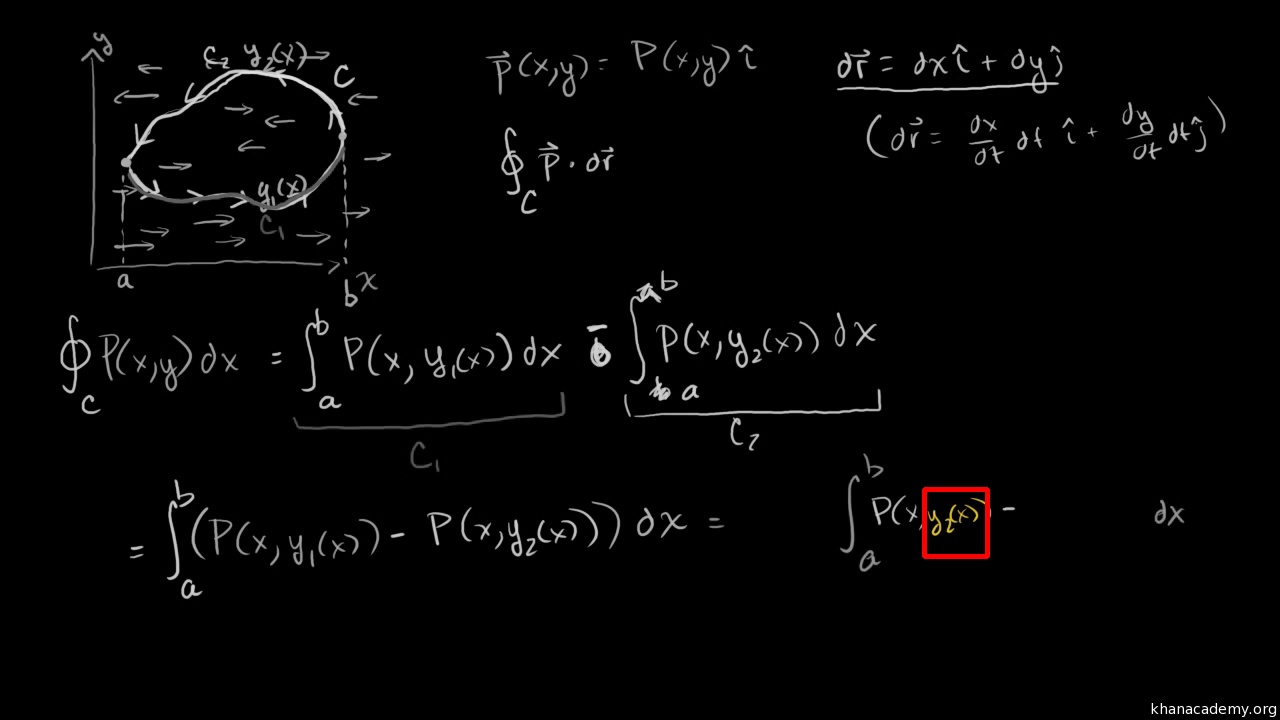 y
C₂ y₂(x)
C
y₁(x)
C₁
a
b
x
p⃗(x,y) = P(x,y) î
∮_C p⃗ · dr⃗
dr⃗ = dx î + dy ĵ
(dr⃗ = dx/dt dt î + dy/dt dt ĵ)
∮_C P(x,y) dx = ∫_a^b P(x, y₁(x)) dx - ∫_a^b P(x, y₂(x)) dx
C₁
C₂
= ∫_a^b (P(x, y₁(x)) - P(x, y₂(x))) dx = ∫_a^b P(x, y₂(x)) - dx
khanacademy.org